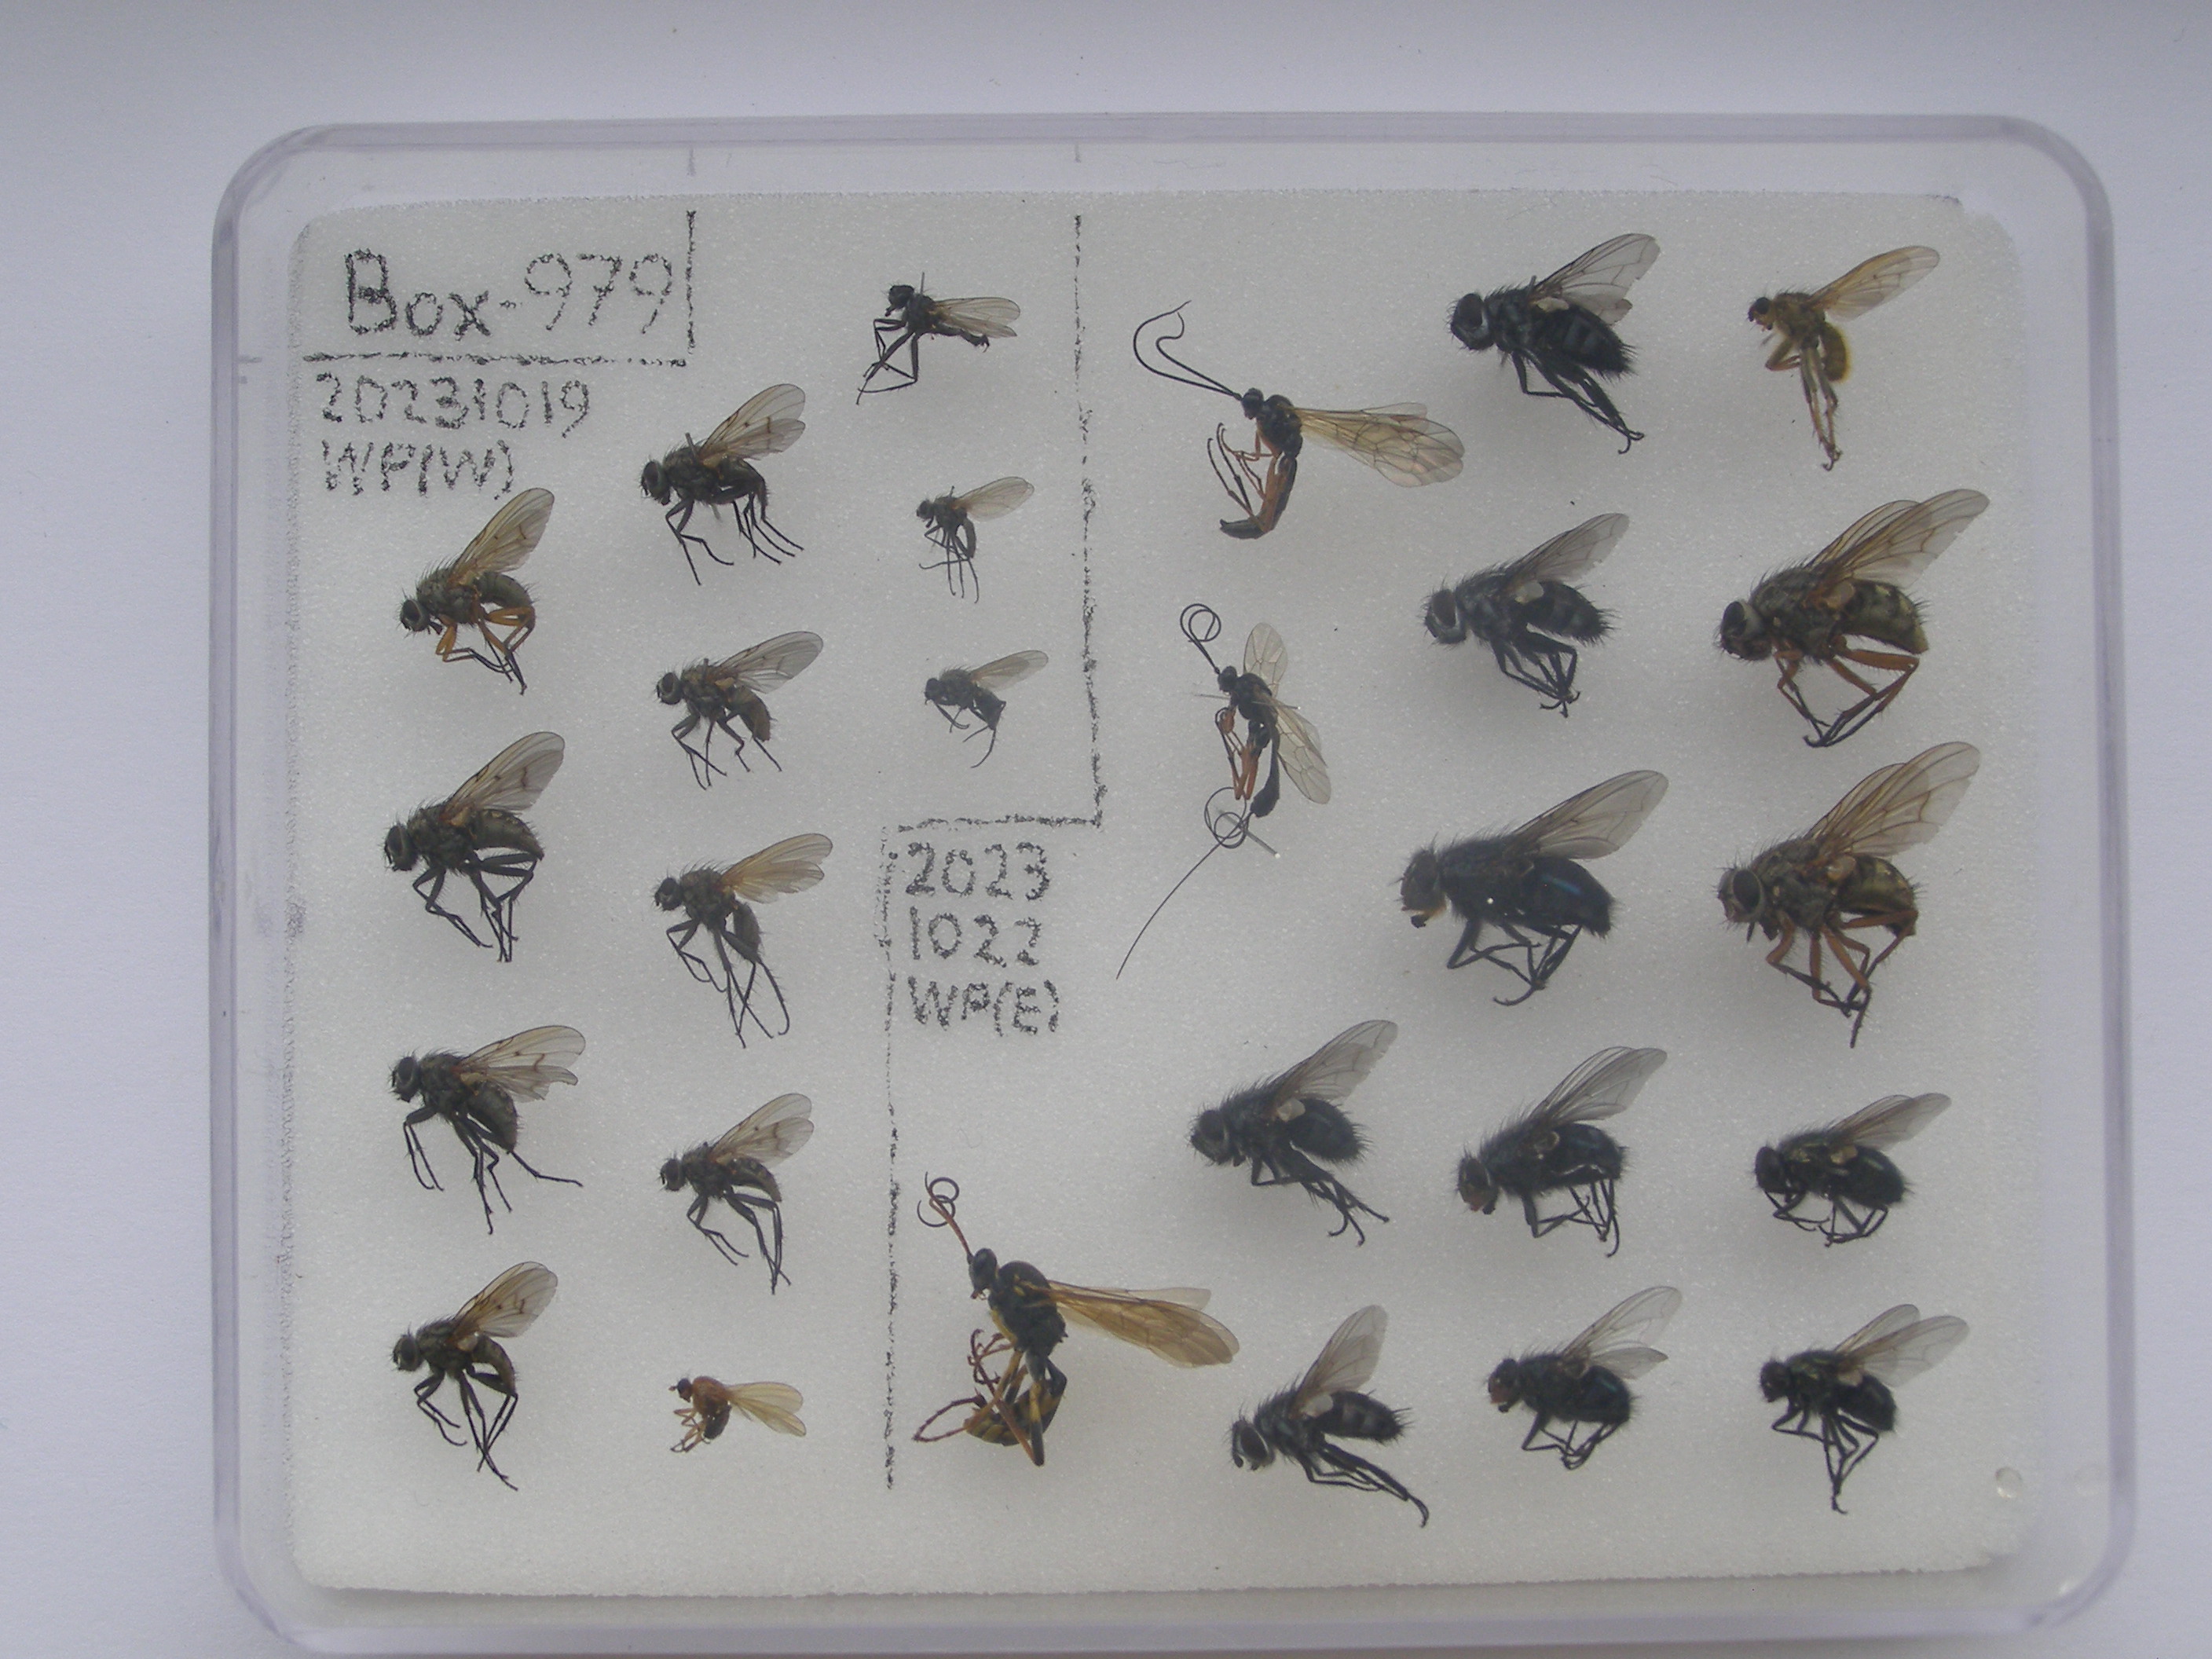 Box-979
20231019
WP(W)
2023
1022
WP(E)